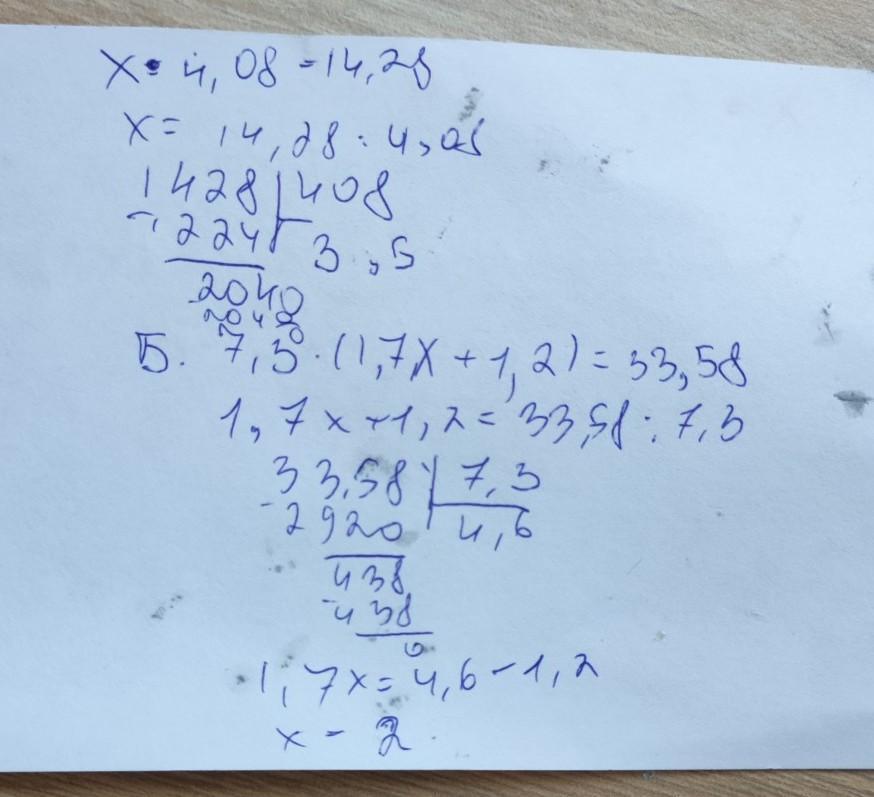 x • 4,08 = 14,28
x = 14,28 : 4,08
1428 | 408
- 1224 3,5
2040
2040
0
Б. 7,3 · (1,7x + 1,2) = 33,58
1,7x + 1,2 = 33,58 : 7,3
33,58 | 7,3
- 2920 4,6
438
- 438
0
1,7x = 4,6 - 1,2
x = 2